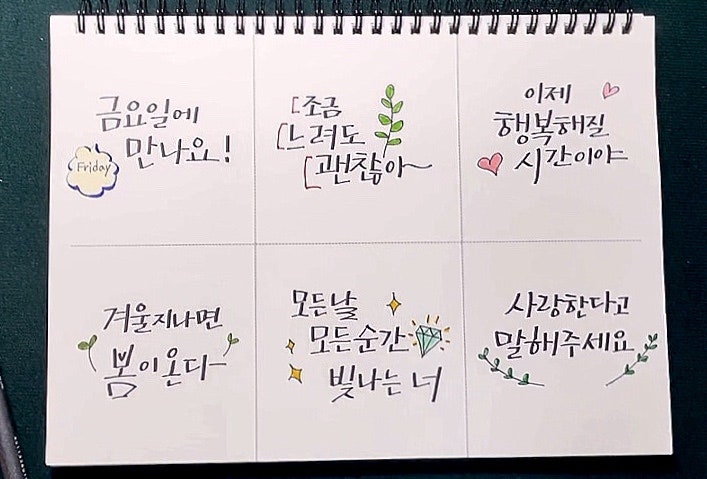 금요일에
만나요!
Friday
조금
느려도
괜찮아~
이제
행복해질
시간이야
겨울지나면
봄이온다~
모든날
모든순간
빛나는 너
사랑한다고
말해주세요